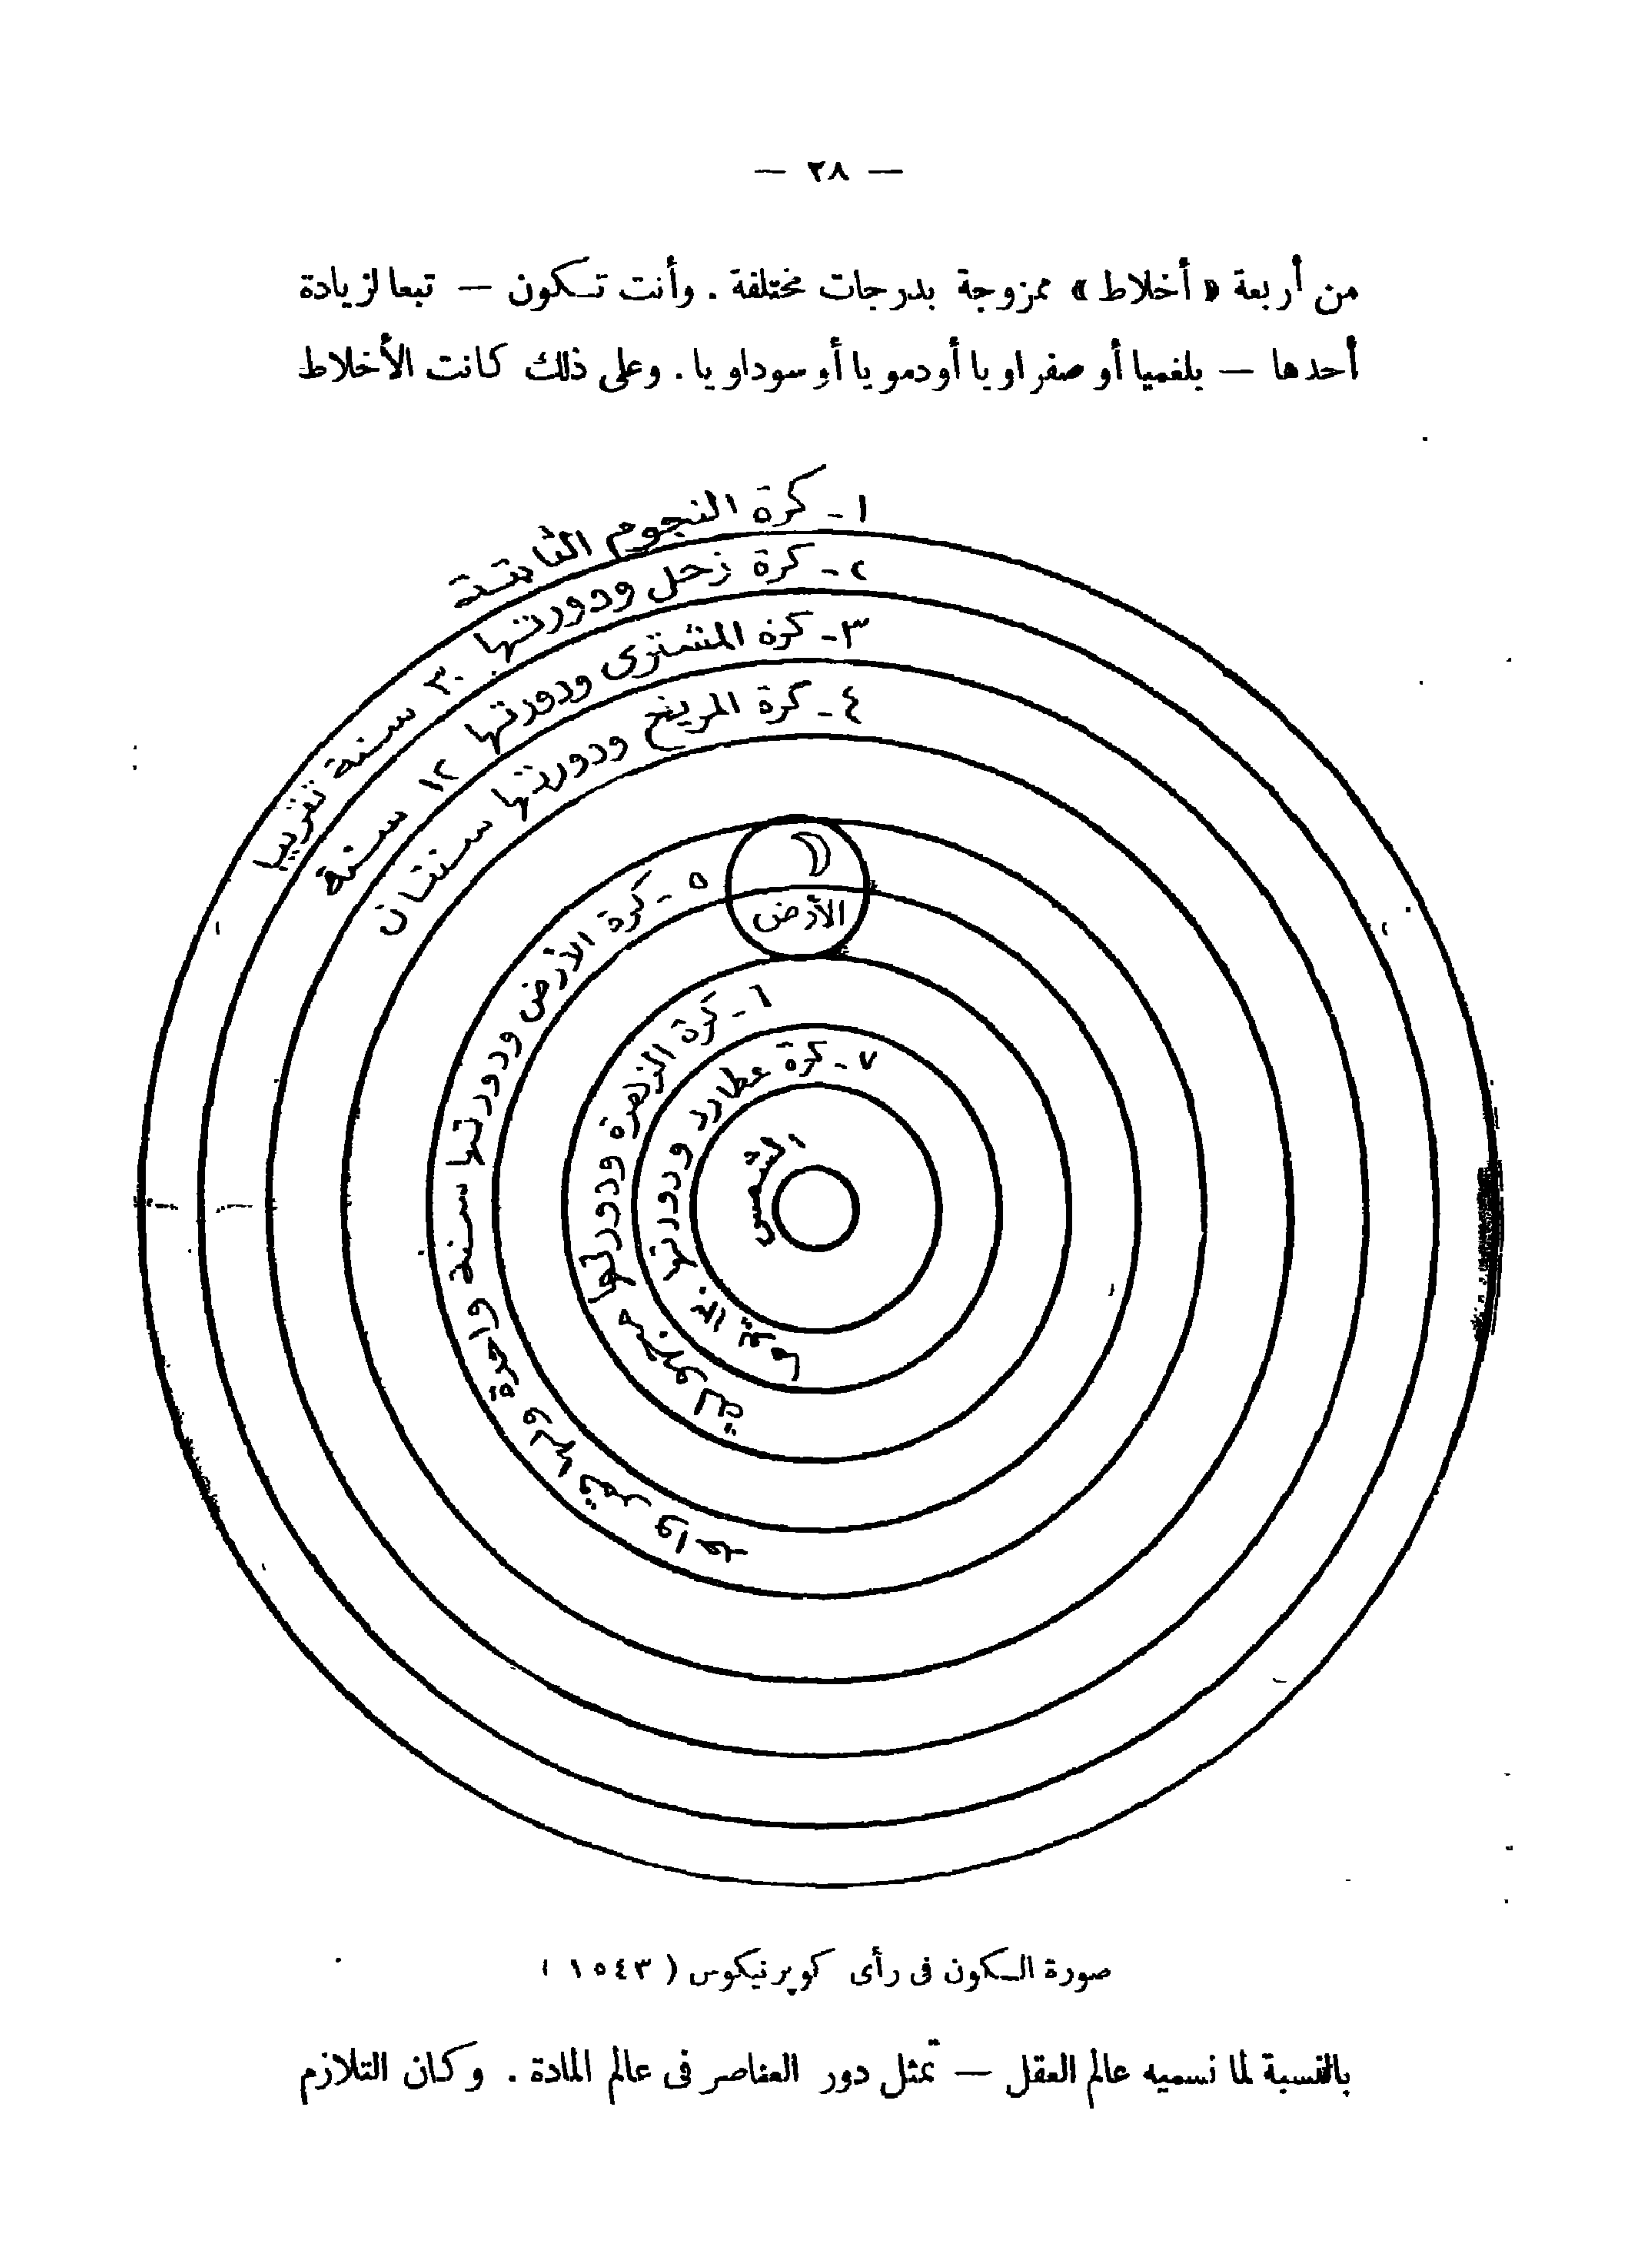 — ٢٨ —
من أربعة « أخلاط » ممزوجة بدرجات مختلفة . وأنت تكون — تبعا لزيادة
أحدها — بلغميا أو صفراويا أو دمويا أو سوداويا . وعلى ذلك كانت الأخلاط
١ - كرة النجوم الثابتة
٢ - كرة زحل ودورتها ٣٠ سنة تقريبا
٣ - كرة المشترى ودورتها ١٢ سنة
٤ - كرة المريخ ودورتها سنتان
٥ - كرة الأرض ودورتها سنة واحدة ولها قمر واحد
الأرض
٦ - كرة الزهرة ودورتها
٧ - كرة عطارد ودورتها
الشمس
صورة الكون فى رأى كوپرنيكوس ( ١٥٤٣ )
بالنسبة لما نسميه عالم العقل — تمثل دور العناصر فى عالم المادة . وكان التلازم